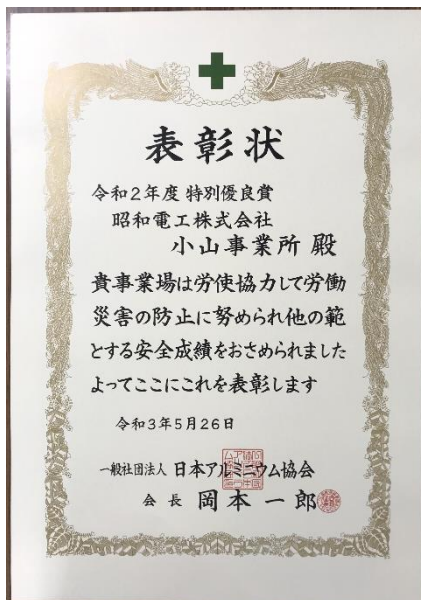 表彰状
令和2年度 特別優良賞
昭和電工株式会社
小山事業所 殿
貴事業場は労使協力して労働
災害の防止に努められ他の範
とする安全成績をおさめられました
よってここにこれを表彰します
令和3年5月26日
一般社団法人 日本アルミニウム協会
会長 岡本一郎